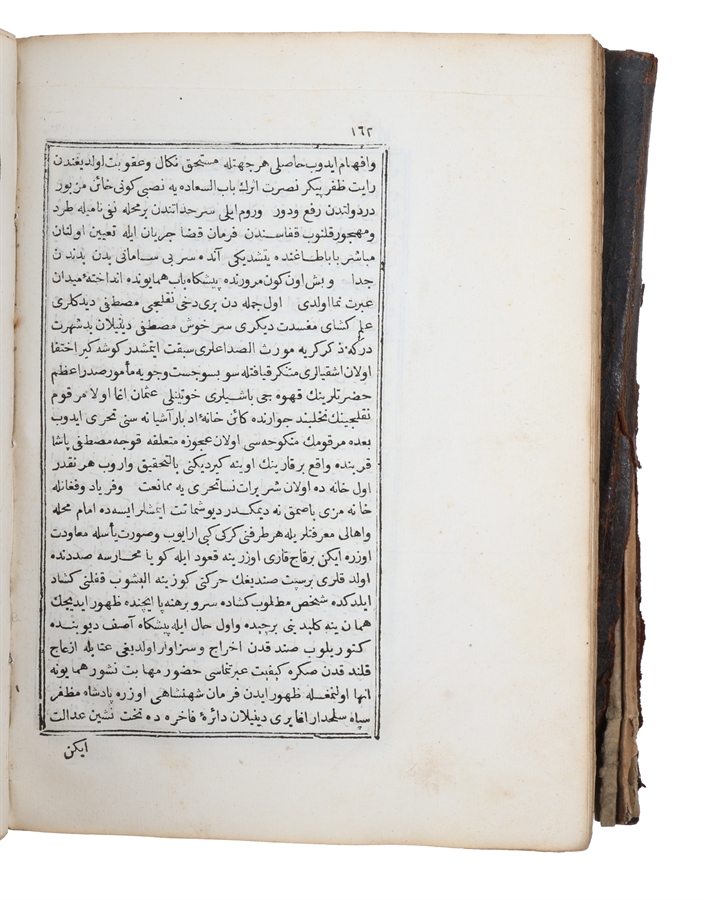 ١٦٢
وافهام ايدوب حاصلى هر جهتله مستحق نكال وعقوبت اولديغندن
رايت ظفر پيكر نصرت اثرك باب السعاده يه نصبى كونى خائن مزبور
در دولتدن رفع ودور وروم ايلى سرحداتندن بر محله نفى ناميله طرد
ومهجور قلنوب قفاسندن فرمان قضا جريان ايله تعيين اولنان
مباشر بابا طاغنده يتشديكى آنده سر بى سامانى بدن بدندن
جدا وبش اون كون مرورنده پيشكاه باب همايونده انداختهٔ ميدان
عبرت نما اولدى اول جمله دن برى دخى نقلجى مصطفى ديدكلرى
علم كشاى مفسدت ديكرى سرخوش مصطفى دينيلان بد شهرت
دركه ذكر كريه مورث الصداعلرى سبقت ايتمشدر كوشه كير اختفا
اولان اشقيالرى متنكر قيافتله سو بسو جست وجويه مأمور صدر اعظم
حضرتلرينك قهوه جى باشيلرى خوتينلى عثمان اغا اولا مرقوم
نقلجينك نخلبند جوارنده كائن خانهٔ ادبار آشيانه سنى تحرى ايدوب
بعده مرقومك منكوحه سى اولان عجوزه متعلقه قوجه مصطفى پاشا
قربنده واقع بر قارينك اوينه كيرديكنى بالتحقيق واروب هر نقدر
اول خانه ده اولان شريرات نسا تحرى يه ممانعت وفرياد وفغانله
خانه مزى باصمق نه ديمكدر ديو شماتت ايتمشلر ايسه ده امام محله
واهالى معرفتلريله هر طرفنى كركى كبى ارايوب وصورت يأسله معاودت
اوزره ايكن بر قاج قارى اوزرينه قعود ايله كويا محارسه صددنده
اولدقلرى بر سپت صنديغك حركتى كوزينه اليشوب قفلنى كشاد
ايلدكده شخص مطلوب كشاده سر و برهنه پا ايچنده ظهور ايديجك
همان ينه كليدينى برچيده واول حال ايله پيشكاه آصف ديوبنده
كتوريلوب صندقدن اخراج وسزاوار اولديغى عتابله ازعاج
قلندقدن صكره كيفيت عبرتنماسى حضور مهابت نشور همايونه
انها اولنمغله ظهور ايدن فرمان شهنشاهى اوزره پادشاه مظفر
سپاه سلحدار اغا يرى دينيلان دائرهٔ فاخره ده تخت نشين عدالت
ايكن